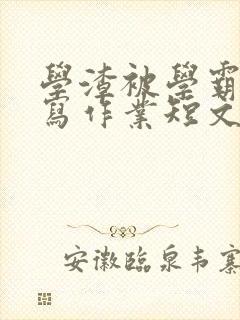 學渣被學霸
寫作業短文
安徽臨泉韦寨